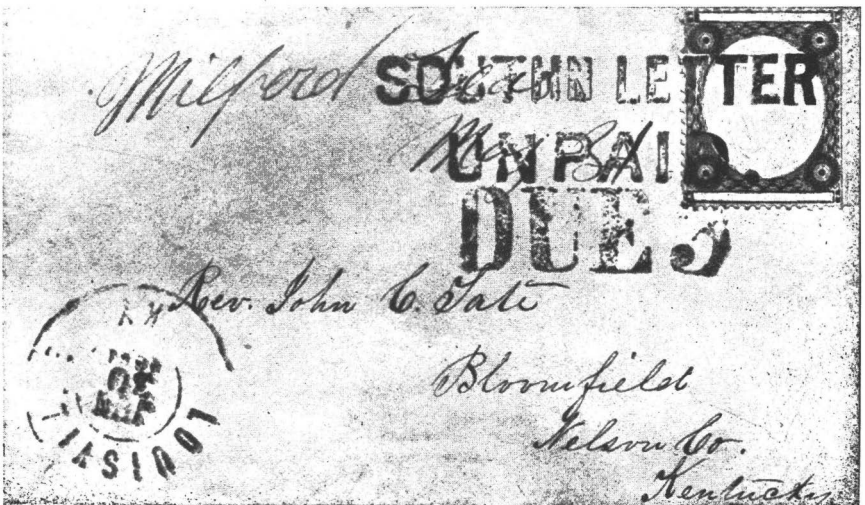 Milford Texas
May 31
SOUTHN LETTER
UNPAI
DUE 3
Rev. John C. Tate
Bloomfield
Nelson Co.
Kentucky
LOUISVIL
KY